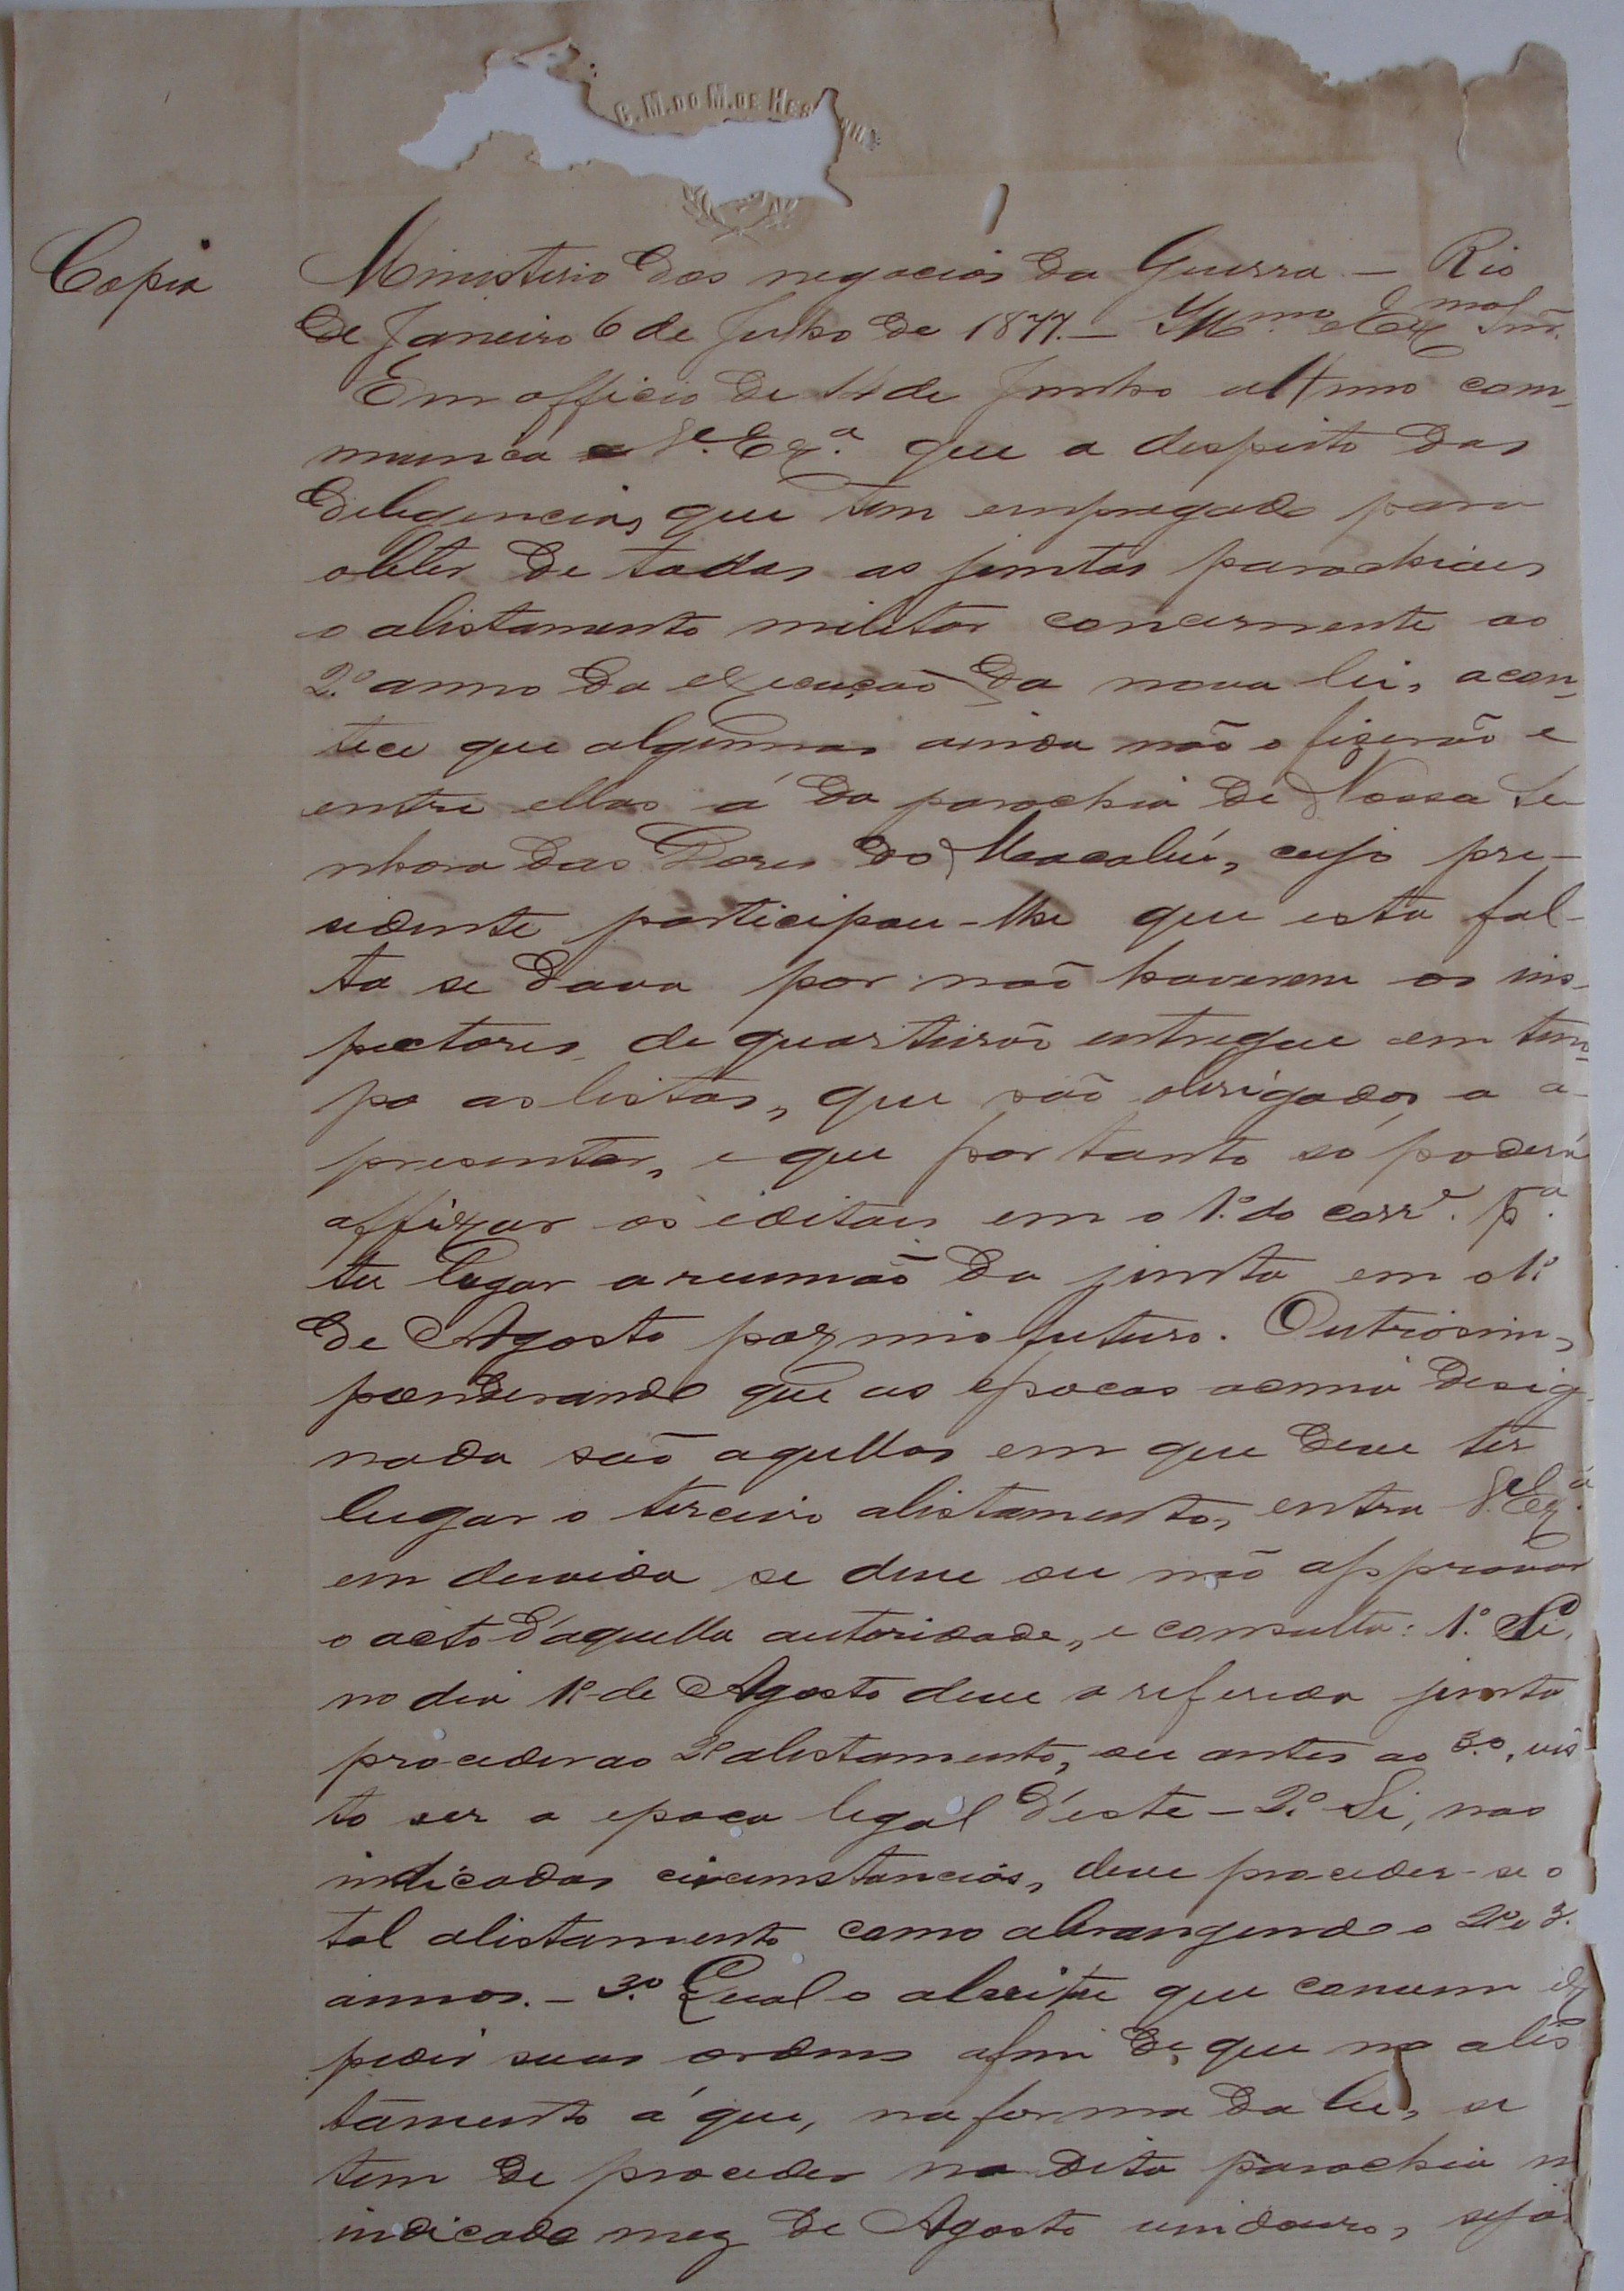 C. M. DO M. DE HES
Copia
Ministerio dos negocios da Guerra — Rio
de Janeiro 6 de Julho de 1877. — Ill.mo e Ex.mo Snr.
Em officio de 14 de Junho ultimo com-
munica V.ª Ex.ª que a despeito das
deligencias, que tem empregado para
obter de todas as juntas parochiaes
o alistamento militar concernente ao
2.º anno da execução da nova lei, acon-
tece que algumas ainda não o fizerão e
entre ellas á da parochia de Nossa Se-
nhora das Dores do Macabú, cujo pre-
sidente participou-lhe que esta fal-
ta se dava por não haverem os ins-
pectores de quarteirão entregue em tem-
po as listas, que são obrigados a a-
presentar, e que por tanto só poderá
affixar os editaes em o 1.º do corr.e p.ª
ter lugar a reunião da junta em o 1.º
de Agosto proximo futuro. Outrosim,
ponderando que as epocas acima desig-
nada são aquellas em que deve ter
lugar o terceiro alistamento, entra V. Ex.ª
em duvida se deve ou não approvar
o acto d'aquella autoridade, e consulta: 1.º Si,
no dia 1.º de Agosto deve a referida junta
proceder ao 2.º alistamento, ou antes ao 3.º, vis-
to ser a epoca legal d'este — 2.º Si, nas
indicadas circumstancias, deve proceder-se o
tal alistamento como abrangendo o 2.º e 3.
annos. — 3.º Qual o alvitre que convem ex
pedir suas ordens afim de que no alis
tamento á que, na forma da lei, se
tem de proceder na dita parochia n
indicado mez de Agosto vindouro, seja